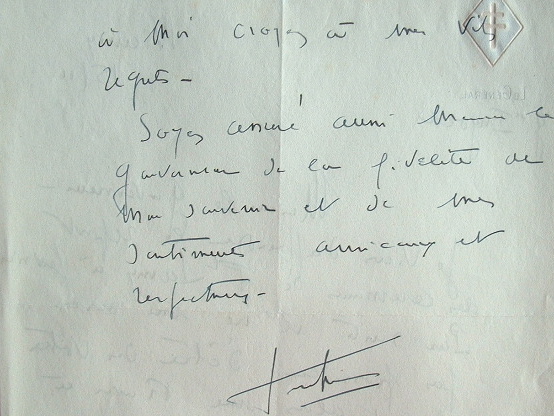 à moi croyez à mes vifs
regrets –
Soyez assuré aussi Monsieur le
Gouverneur de la fidélité de
mon souvenir et de mes
sentiments amicaux et
respectueux –